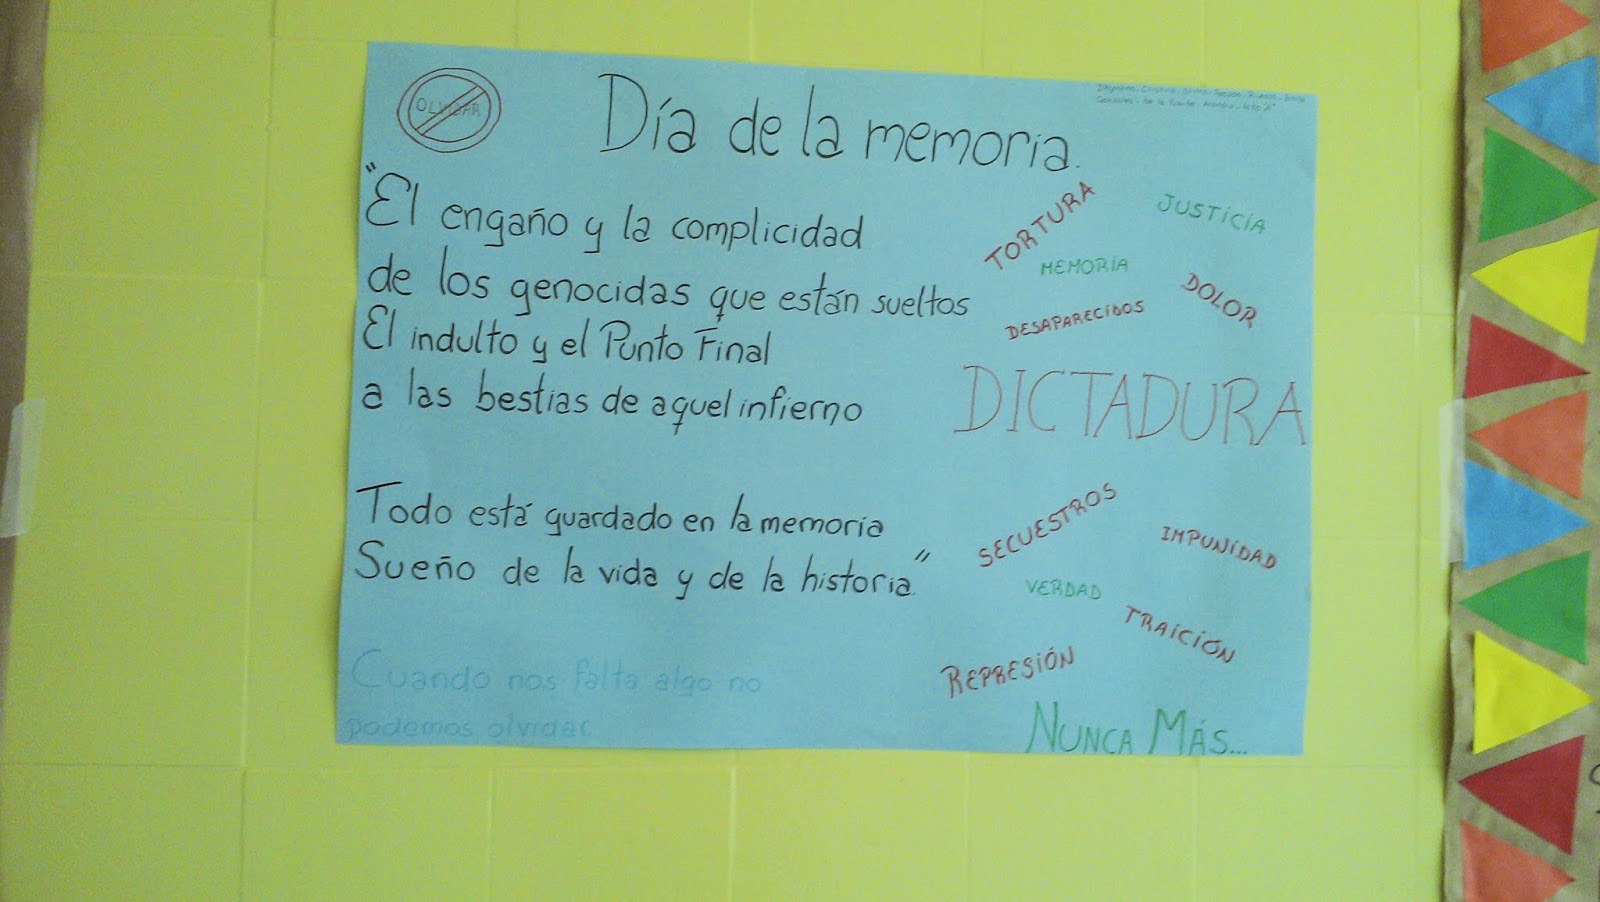 OLVIDAR
Día de la memoria.
"El engaño y la complicidad
de los genocidas que están sueltos
El indulto y el Punto Final
a las bestias de aquel infierno
Todo está guardado en la memoria
Sueño de la vida y de la historia."
Cuando nos falta algo no
podemos olvidar.
TORTURA
JUSTICIA
MEMORIA
DOLOR
DESAPARECIDOS
DICTADURA
SECUESTROS
IMPUNIDAD
VERDAD
TRAICIÓN
REPRESIÓN
NUNCA MÁS...